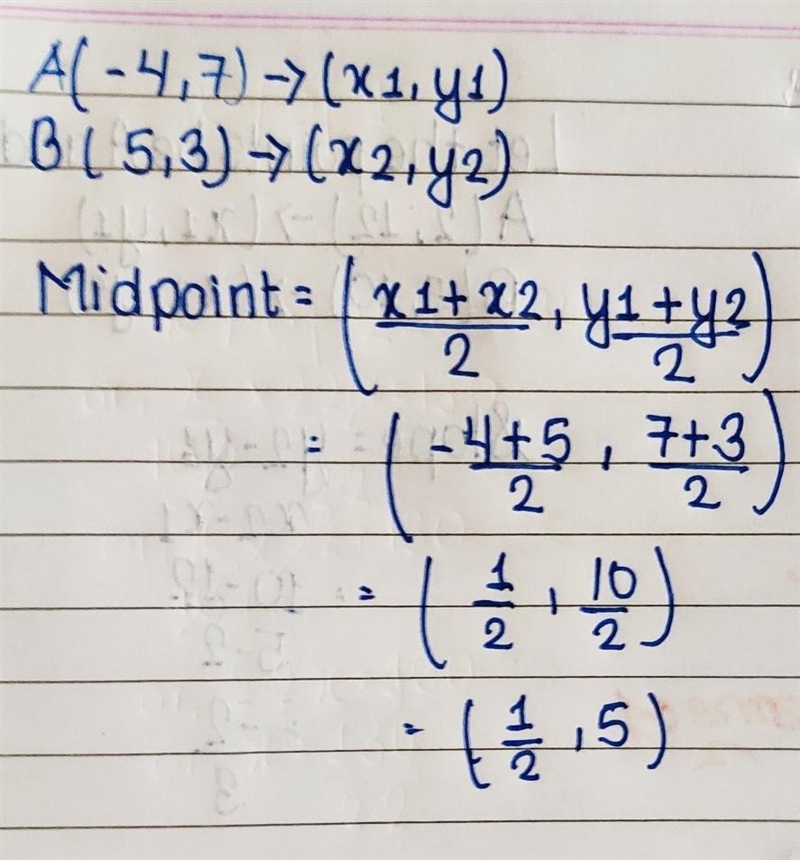 A(-4,7) → (x1, y1)
B(5,3) → (x2, y2)
Midpoint = (x1+x2/2, y1+y2/2)
= (-4+5/2, 7+3/2)
= (1/2, 10/2)
= (1/2, 5)